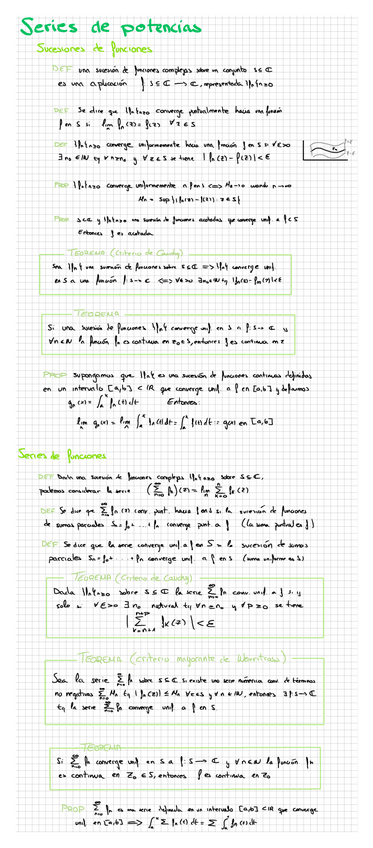 Series de potencias
Sucesiones de funciones
DEF una sucesión de funciones complejas sobre un conjunto S ⊂ ℂ
es una aplicación f S ⊂ ℂ → ℂ, representada {fn}n≥0
DEF Se dice que {fn}n≥0 converge puntualmente hacia una función
f en S si lim fn(z) = f(z) ∀z∈S
DEF {fn}n≥0 converge uniformemente hacia una función f en S si ∀ε>0
∃n0∈ℕ tq ∀n≥n0 y ∀z∈S se tiene |fn(z)-f(z)|<ε
PROP {fn}n≥0 converge uniformemente a f en S <=> Mn→0 cuando n→∞
Mn = Sup{|fn(z)-f(z)| : z∈S}
PROP S⊂ℂ y {fn}n≥0 una sucesión de funciones acotadas que converge unif. a f
Entonces f es acotada.
TEOREMA (Criterio de Cauchy)
Sea {fn} una sucesión de funciones sobre S⊂ℂ => {fn} converge unif.
en S a una función f: S→ℂ <=> ∀ε>0 ∃n0∈ℕ tq |fn(z)-fm(z)|<ε
TEOREMA
Si una sucesión de funciones {fn} converge unif. en S a f: S→ℂ y
∀n∈ℕ la función fn es continua en z0∈S, entonces f es continua en z
PROP Supongamos que {fn} es una sucesión de funciones continuas definidas
en un intervalo [a,b] ⊂ ℝ que converge unif. a f en [a,b] y definamos
gn(x) = ∫ₐˣ fn(t)dt Entonces:
lim gn(x) = lim ∫ₐˣ fn(t)dt = ∫ₐˣ f(t)dt = g(x) en [a,b]
Series de funciones
DEF Dada una sucesión de funciones complejas {fn}n≥0 sobre S⊂ℂ,
podemos considerar la serie (∑ fn)(z) = lim ∑ fk(z)
DEF Se dice que ∑ fn(z) conv. punt. hacia f en S si la sucesión de funciones
de sumas parciales Sn = f0 + ... + fn converge punt a f (la suma puntual es f)
DEF Se dice que la serie converge unif. a f en S si la sucesión de sumas
parciales Sn = f0 + ... + fn converge unif. a f en S (suma uniforme en S)
TEOREMA (Criterio de Cauchy)
Dada {fn}n≥0 sobre S⊂ℂ la serie ∑ fn conv. unif. a f si y
solo si ∀ε>0 ∃n0 natural tq ∀n≥n0 y ∀p≥0 se tiene
|∑ fk(z)| < ε
TEOREMA (criterio mayorante de Weierstrass)
Sea la serie ∑ fn sobre S⊂ℂ si existe una serie numérica conv. de términos
no negativos ∑ Mn tq |fn(z)| ≤ Mn ∀z∈S y ∀n∈ℕ, entonces ∃f: S→ℂ
tq la serie ∑ fn converge unif. a f en S.
TEOREMA
Si ∑ fn converge unif. en S a f: S→ℂ y ∀n∈ℕ la función fn
es continua en z0∈S, entonces f es continua en z0
PROP ∑ fn es una serie definida en un intervalo [a,b] ⊂ ℝ que converge
unif. en [a,b] => ∫ₐˣ ∑ fn(t)dt = ∑ ∫ₐˣ fn(t)dt